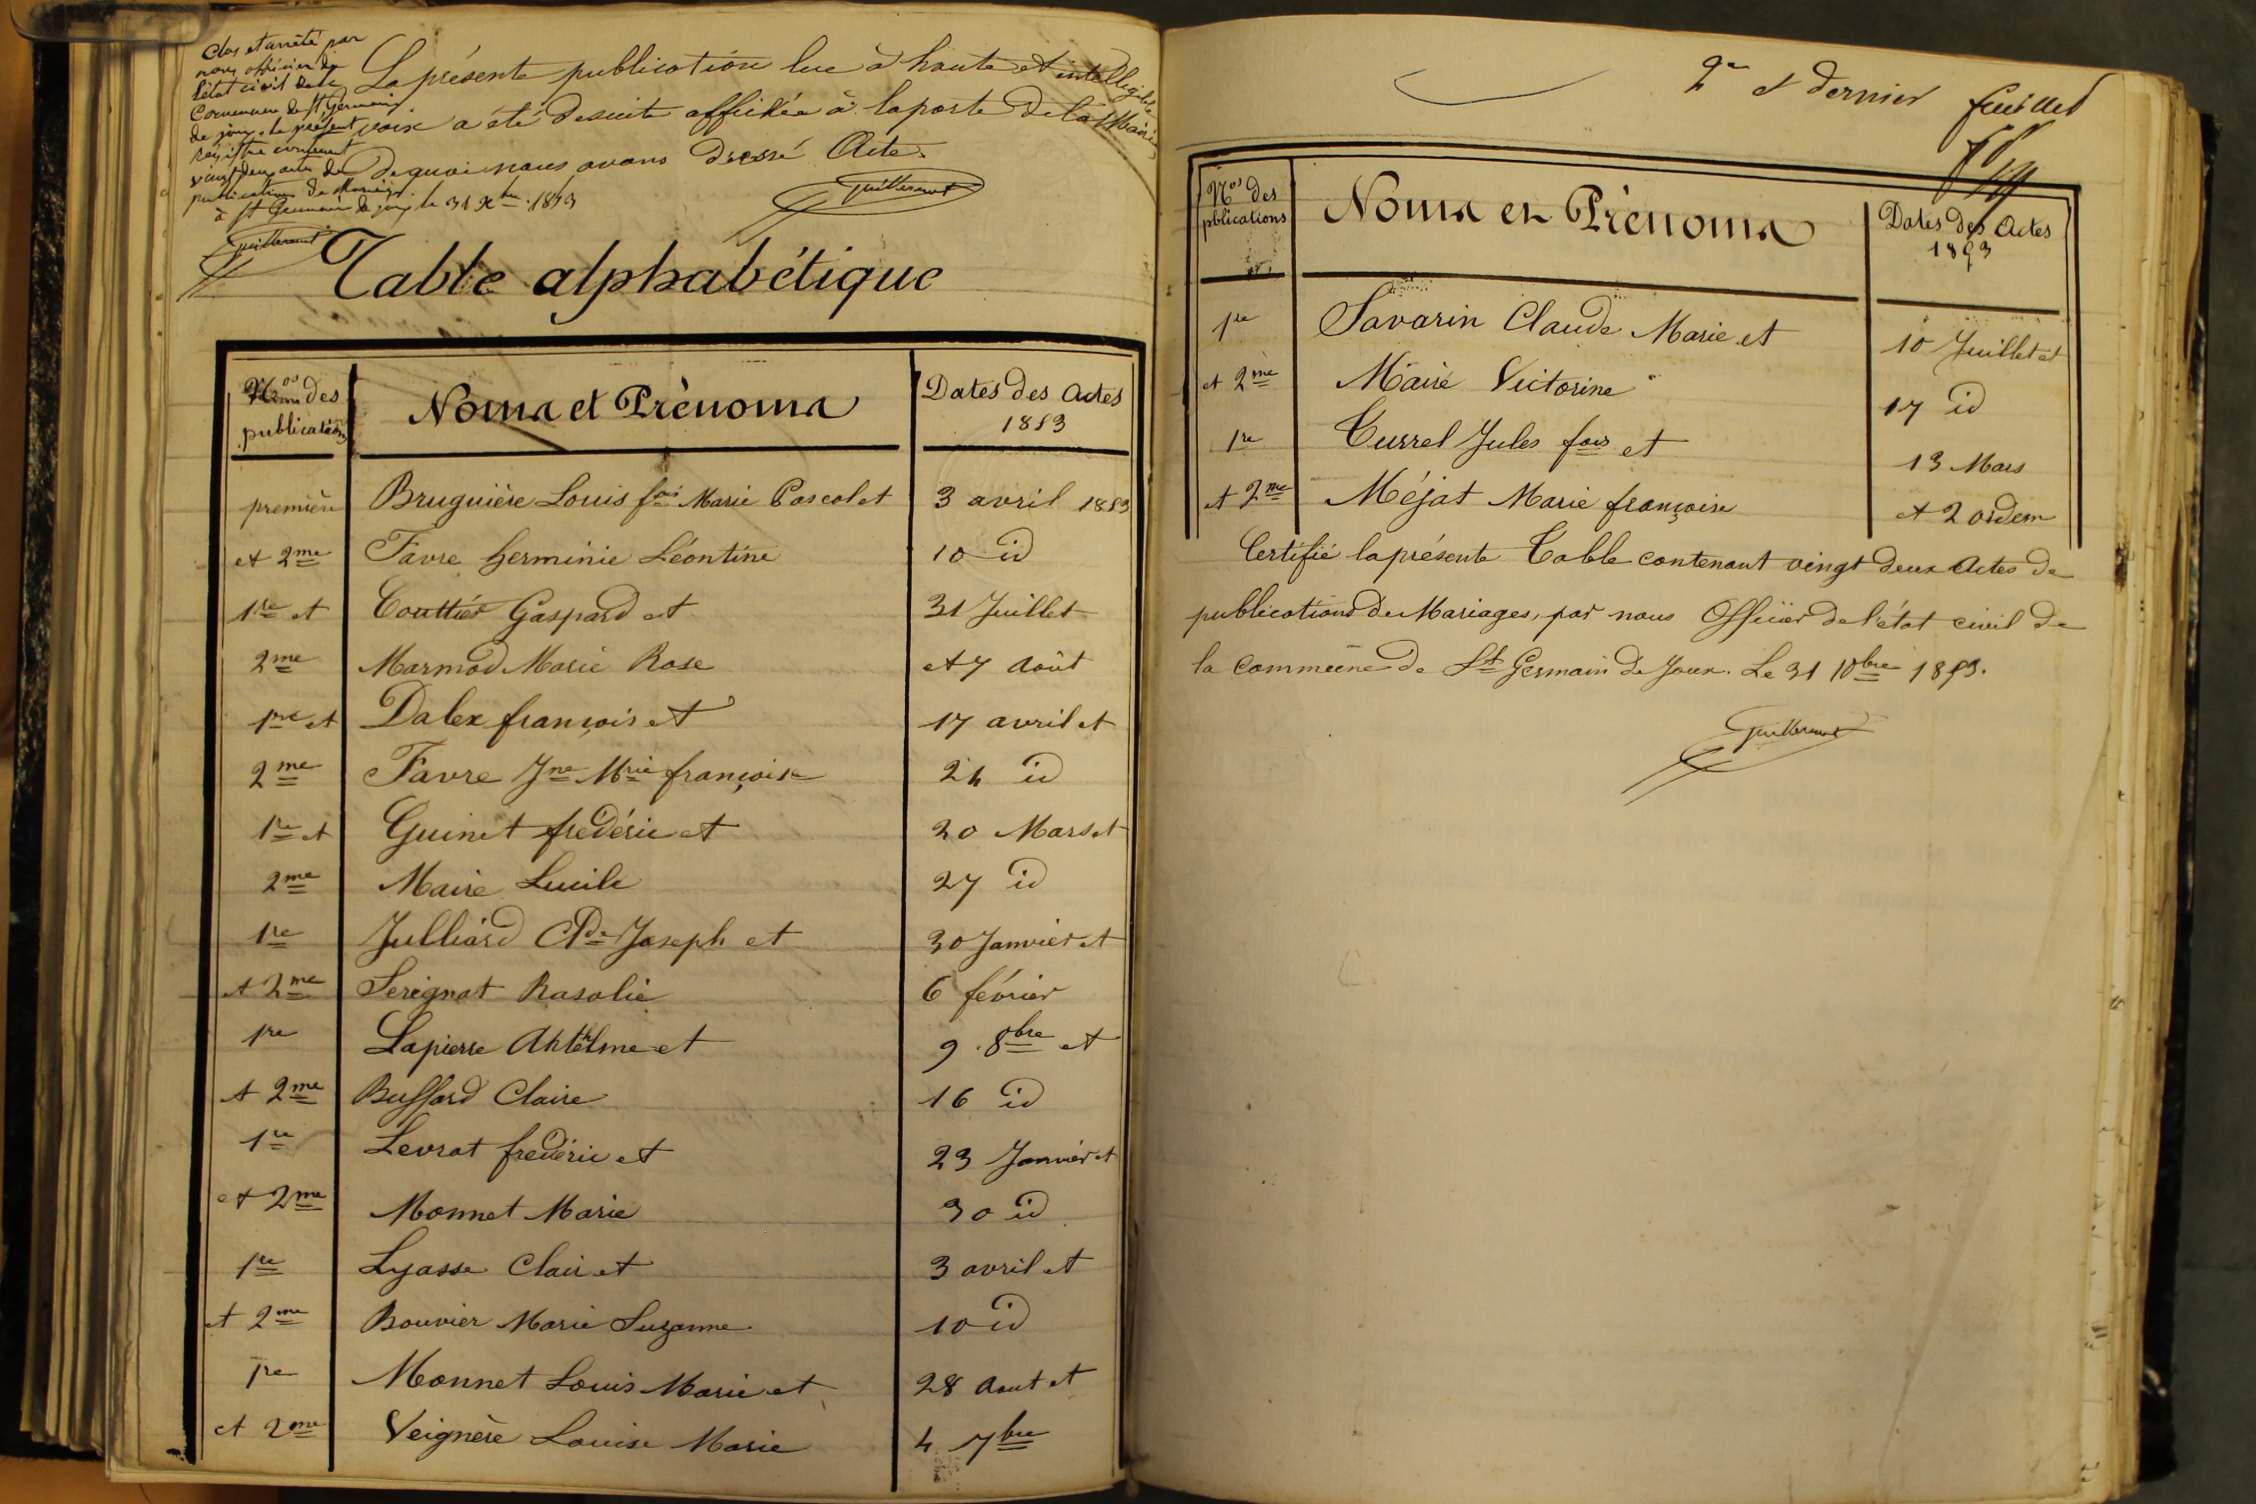 Clos et arrêté par
nous officier de
l'état civil de la
Commune de St Germain
de Joux, le présent
registre contenant
vingt deux actes de
publications de Mariages
à St Germain de Joux le 31 Xbre 1853
Guillermet
La présente publication lue à haute et intelligible
voix a été desuite affichée à la porte de la Mairie
De quoi nous avons Dressé Acte.
Guillermet
Table alphabétique
Nos des publications
Noms et Prénoms
Dates des Actes 1853
première Bruguière Louis fois Marie Pascal et 3 avril 1853
et 2me Favre herminie Léontine 10 id
1re et Couttier Gaspard et 31 Juillet
2me Marmod Marie Rose et 7 Août
1re et Dalex françois et 17 avril et
2me Favre Jne Mrie françoise 24 id
1re et Guinet frédéric et 20 Mars et
2me Maire Lucile 27 id
1re Julliard Cde Joseph et 30 Janvier et
et 2me Serignat Rosalie 6 février
1re Lapierre Anthelme et 9 8bre et
et 2me Buffard Claire 16 id
1re Levrat frédéric et 23 Janvier et
et 2me Monnet Marie 30 id
1re Lyasse Clair et 3 avril et
et 2me Bouvier Marie Suzanne 10 id
1re Monnet Louis Marie et 28 Aout et
et 2me Veignère Louise Marie 4 7bre
2e et dernier feuillet
Nos des publications
Noms et Prénoms
Dates des Actes 1853
1re Savarin Claude Marie et 10 Juillet et
et 2me Maire Victorine 17 id
1re Turrel Jules fois et 13 Mars
et 2me Méjat Marie françoise et 20 idem
Certifié la présente Table contenant vingt deux Actes de
publications de Mariages, par nous Officier de l'état civil de
la Commune de St Germain de Joux. Le 31 10bre 1853.
Guillermet